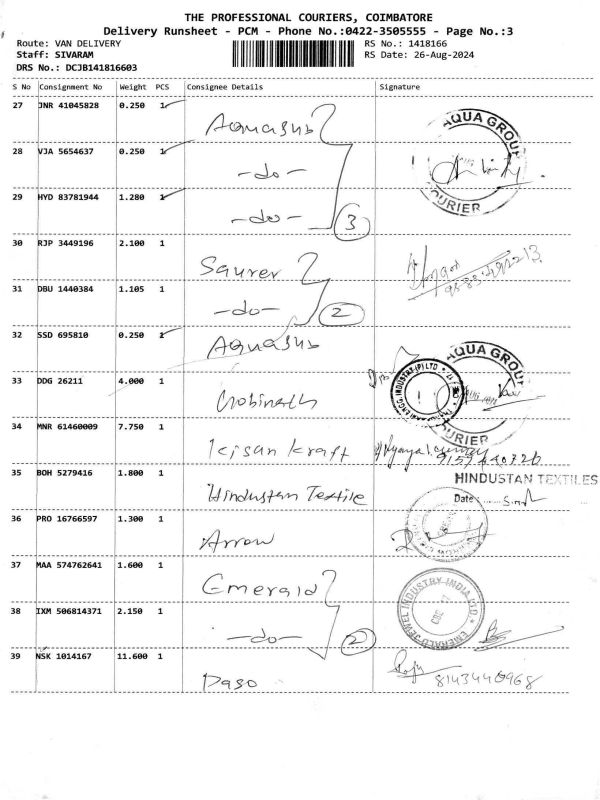 THE PROFESSIONAL COURIERS, COIMBATORE
Delivery Runsheet - PCM - Phone No.:0422-3505555 - Page No.:3
Route: VAN DELIVERY RS No.: 1418166
Staff: SIVARAM RS Date: 26-Aug-2024
DRS No.: DCJB141816603
S No Consignment No Weight PCS Consignee Details Signature
27 JNR 41045828 0.250 1 Aquasub
28 VJA 5654637 0.250 1 -do-
29 HYD 83781944 1.280 1 -do- 3
AQUA GROUP
COURIER
30 RJP 3449196 2.100 1 Saurer
31 DBU 1440384 1.105 1 -do- 2
32 SSD 695810 0.250 1 Aquasub
AQUA GROUP
COURIER
33 DDG 26211 4.000 1 Gobinath
34 MNR 61460009 7.750 1 Kisan Kraft
35 BOH 5279416 1.800 1 Hindustan Textile
HINDUSTAN TEXTILES
Date
36 PRO 16766597 1.300 1 Arrow
37 MAA 574762641 1.600 1 Emerald
38 IXM 506814371 2.150 1 -do- 2
EMERALD JEWEL INDUSTRY INDIA LTD
39 NSK 1014167 11.600 1 Paso
8143440968